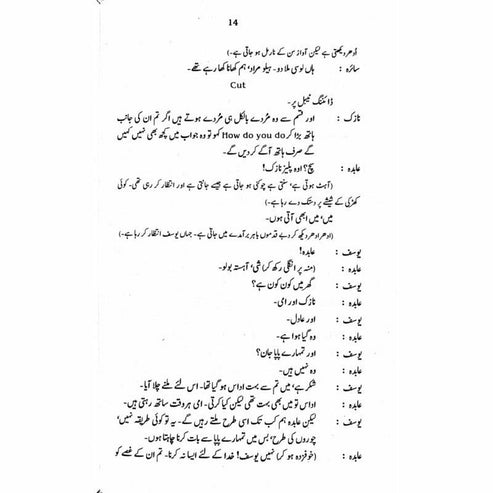 14
اُدھر دیکھتی ہے لیکن آواز سن کے نارمل ہو جاتی ہے۔)
سائرہ : ہاں لوسی ملا دو۔ ہیلو مراد' ہم کھانا کھا رہے تھے۔
Cut
ڈائننگ ٹیبل پر۔
نازک : اور قسم سے وہ مُردے بالکل ہی مُردے ہوتے ہیں اگر تم ان کی جانب
ہاتھ بڑا کر How do you do کہو تو وہ جواب میں کچھ بھی نہیں کہیں
گے صرف ہاتھ آگے کر دیں گے۔
عابدہ : سچ؟ اوہ پلیز نازک!
(آہٹ ہوتی ہے' سنتی ہے چوکنی ہو جاتی ہے جیسے جانتی ہے اور انتظار کر رہی تھی۔ کوئی
کھڑکی کے شیشے پر دستک دے رہا ہے۔)
میں' میں ابھی آتی ہوں۔
(ادھر ادھر دیکھ کر دبے قدموں باہر برآمدے میں جاتی ہے۔ جہاں یوسف انتظار کر رہا ہے۔)
یوسف : عابدہ!
عابدہ : (منہ پر انگلی رکھ کر) شی' آہستہ بولو۔
یوسف : گھر میں کون کون ہے؟
عابدہ : نازک اور امی۔
یوسف : اور عادل۔
عابدہ : وہ گیا ہوا ہے۔
یوسف : اور تمہارے پاپا جان؟
عابدہ : وہ نہیں ہیں۔
یوسف : شکر ہے' میں تم سے بہت اداس ہو گیا تھا۔ اس لئے ملنے چلا آیا۔
عابدہ : اداس تو میں بھی بہت تھی لیکن کیا کرتی۔ امی ہر وقت ساتھ رہتی ہیں۔
یوسف : لیکن عابدہ ہم کب تک اسی طرح ملتے رہیں گے۔ یہ تو کوئی طریقہ نہیں'
چوروں کی طرح' بس میں تمہارے پاپا سے بات کرنا چاہتا ہوں۔
عابدہ : (خوفزدہ ہو کر) نہیں یوسف! خدا کے لئے ایسا نہ کرنا۔ تم ان کے غصے کو